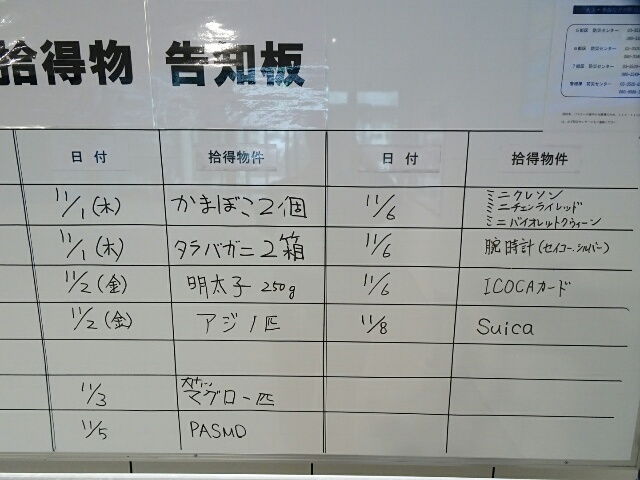 拾得物 告知板
日付 拾得物件 日付 拾得物件
11/1(木) かまぼこ2個 11/6 ミニクレソン
ミニチェンライレッド
ミニバイオレットクウィーン
11/1(木) タラバガニ2箱 11/6 腕時計(セイコー.シルバー)
11/2(金) 明太子 250g 11/6 ICOCAカード
11/2(金) アジ1匹 11/8 Suica
11/3 マグロ一匹
11/5 PASMO
防災センター
防災センター
防災センター
防災センター